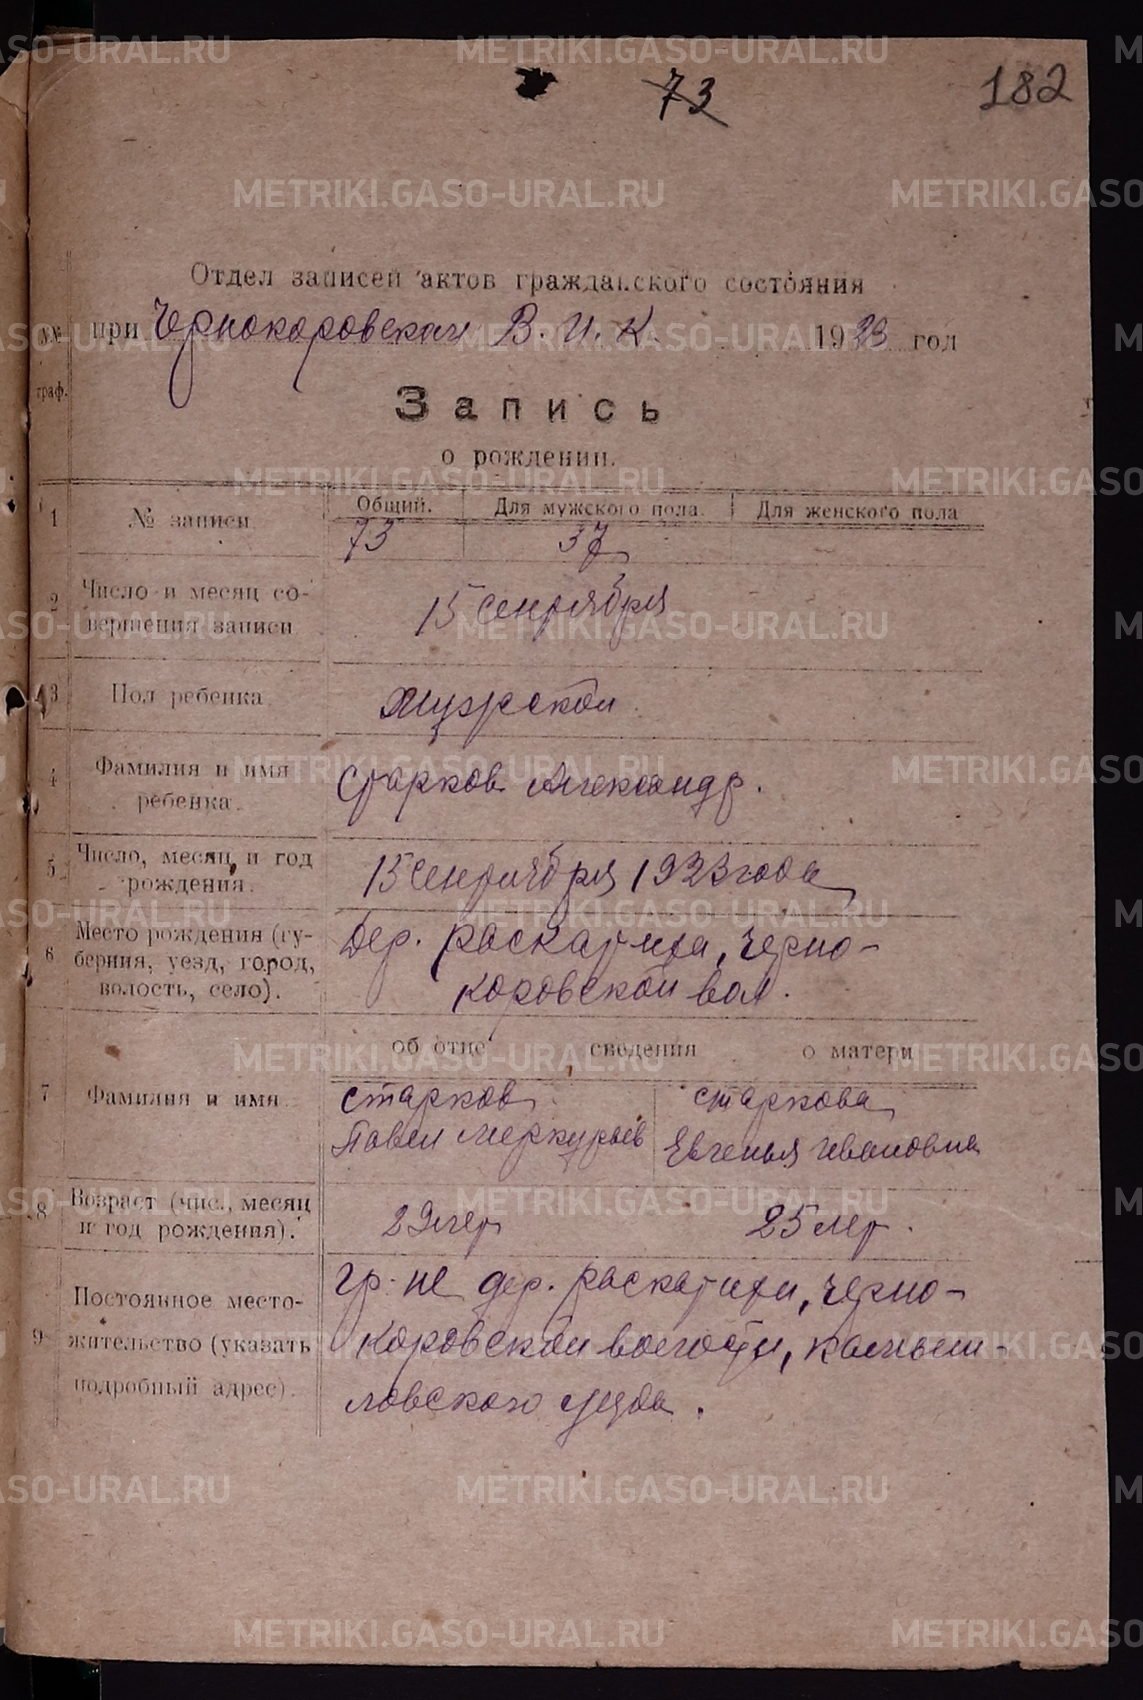 73
182
Отдел записей актов гражданского состояния
при Чернокоровском В. И. К. 1923 год
№№ граф.
Запись
о рождении.
1 № записи
Общий. Для мужского пола. Для женского пола
73 37
2 Число и месяц со-
вершения записи
15 сентября
3 Пол ребенка
Мужской
4 Фамилия и имя
ребенка.
Старков Александр.
5 Число, месяц и год
рождения.
15 сентября 1923 года
6 Место рождения (гу-
берния, уезд, город,
волость, село).
Дер. Раскатиха, Черно-
коровской вол.
об отце сведения о матери
7 Фамилия и имя
Старков Старкова
Павел Меркурьев Евгенья Ивановна
8 Возраст (чис., месяц
и год рождения).
29 лет 25 лет.
9 Постоянное место-
жительство (указать
подробный адрес).
гр-не дер. Раскатихи, Черно-
коровской волости, Камыш-
ловского уезда.
METRIKI.GASO-URAL.RU